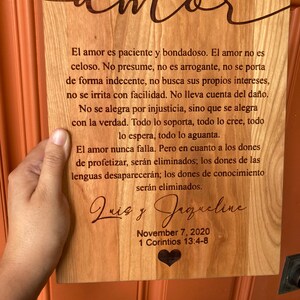 amor
El amor es paciente y bondadoso. El amor no es
celoso. No presume, no es arrogante, no se porta
de forma indecente, no busca sus propios intereses,
no se irrita con facilidad. No lleva cuenta del daño.
No se alegra por injusticia, sino que se alegra
con la verdad. Todo lo soporta, todo lo cree, todo
lo espera, todo lo aguanta.
El amor nunca falla. Pero en cuanto a los dones
de profetizar, serán eliminados; los dones de las
lenguas desaparecerán; los dones de conocimiento
serán eliminados.
Luis y Jaqueline
November 7, 2020
1 Corintios 13:4-8